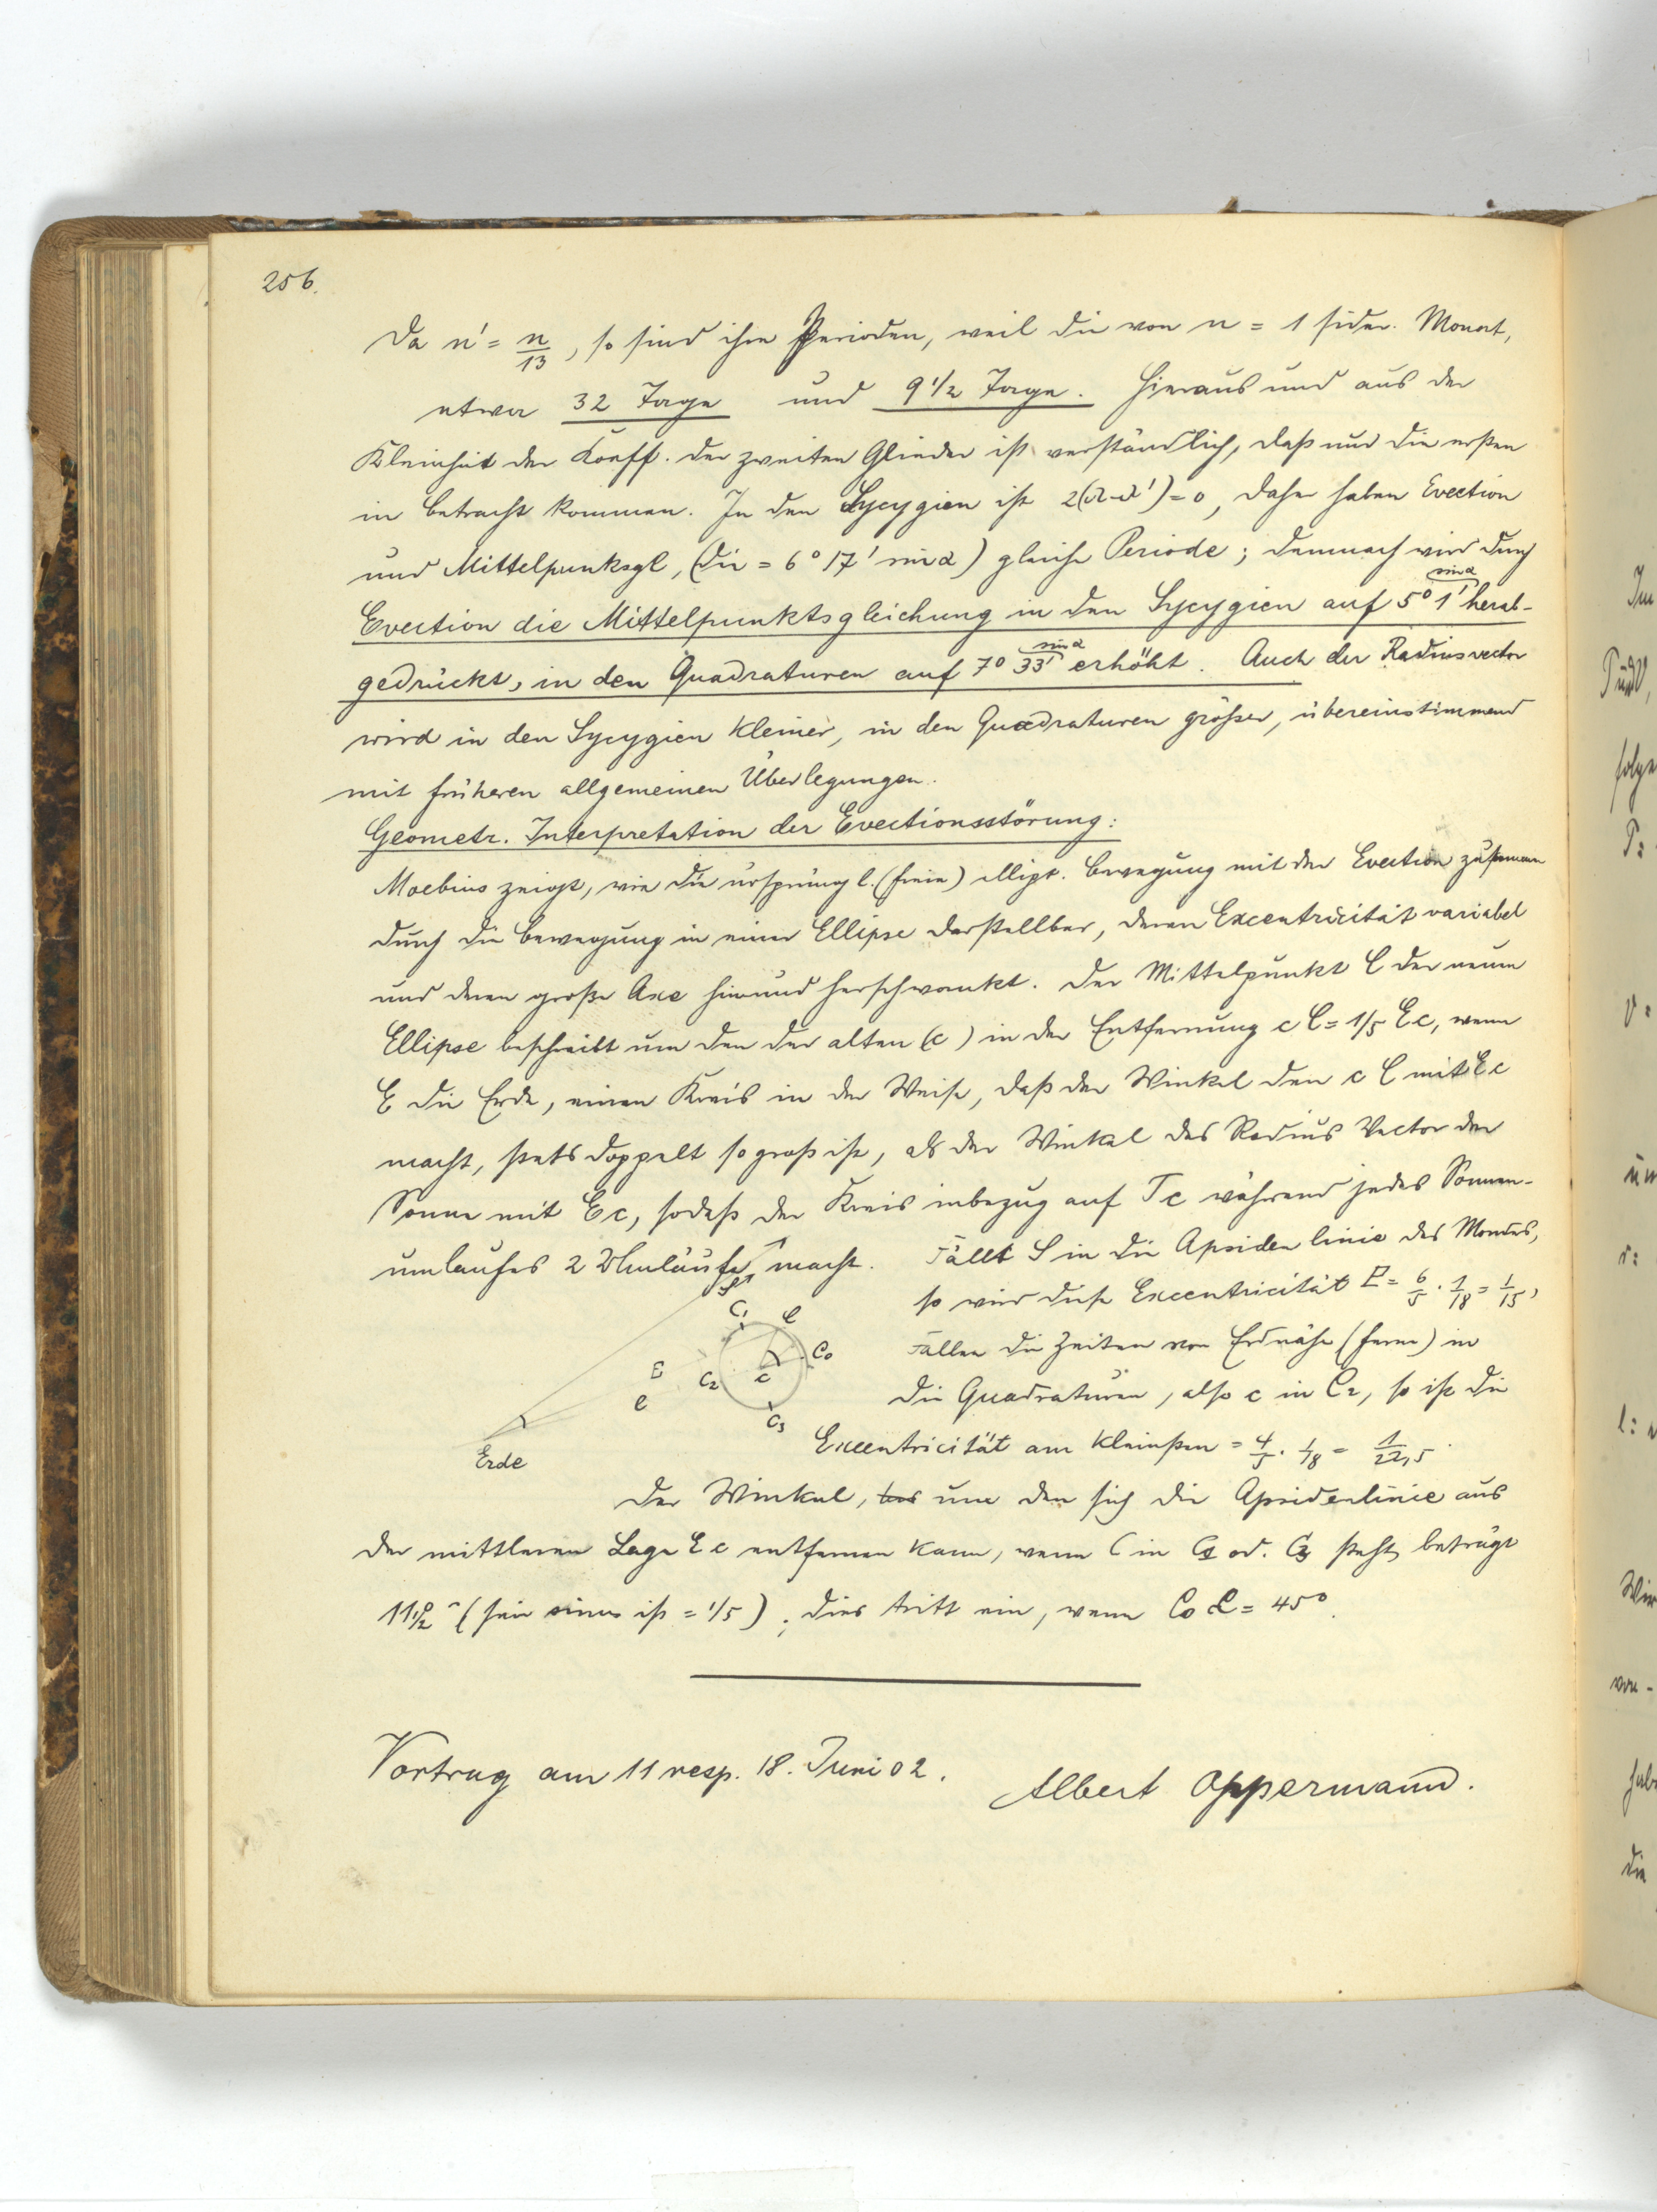 256.
Da n' = n/13, so sind ihre Perioden, weil die von n = 1 sider. Monat,
etwa 32 Tage und 9 1/2 Tage. Hieraus und aus der
Kleinheit der Koeff. der zweiten Glieder ist verständlich, daß nur die ersten
in Betracht kommen. In den Sycygien ist 2(λ-λ')=0, daher haben Evection
und Mittelpunktsgl, (die = 6° 17' sin α) gleiche Periode; demnach wird durch
Evection die Mittelpunktsgleichung in den Sycygien auf 5° 1' sin α herab-
gedrückt, in den Quadraturen auf 7° 33' sin α erhöht. Auch der Radiusvector
wird in den Sycygien kleiner, in den Quadraturen größer, übereinstimmend
mit früheren allgemeinen Überlegungen.
Geometr. Interpretation der Evectionsstörung:
Moebius zeigt, wie die ursprüngl. (freie) ellipt. Bewegung mit der Evection zusammen
durch die Bewegung in einer Ellipse darstellbar, deren Excentricität variabel
und deren große Axe hin und herschwankt. Der Mittelpunkt C der neuen
Ellipse beschreibt um den der alten (c) in der Entfernung c C = 1/5 E c, wenn
E die Erde, einen Kreis in der Weise, daß der Winkel den c C mit E c
macht, stets doppelt so groß ist, als der Winkel des Radius Vector der
Sonne mit E c, sodaß der Kreis inbezug auf T c während jedes Sonnen-
umlaufes 2 Umläufe macht. Fällt S in die Apsidenlinie des Mondes,
so wird diese Excentricität = 6/5 · 1/18 = 1/15,
Fallen die Zeiten von Erdnähe (ferne) in
die Quadraturen, also c in C2, so ist die
Excentricität am kleinsten = 4/5 · 1/18 = 1/22,5.
C1 C
C0
E C2 c
C
C3
Erde
Der Winkel, um den sich die Apsidenlinie aus
der mittleren Lage E c entfernen kann, wenn C in C1 od. C3 steht, beträgt
11 1/2° (sein sinus ist = 1/5); dies tritt ein, wenn C0 = 45°.
Vortrag am 11 resp. 18. Juni 02.
Albert Oppermann.